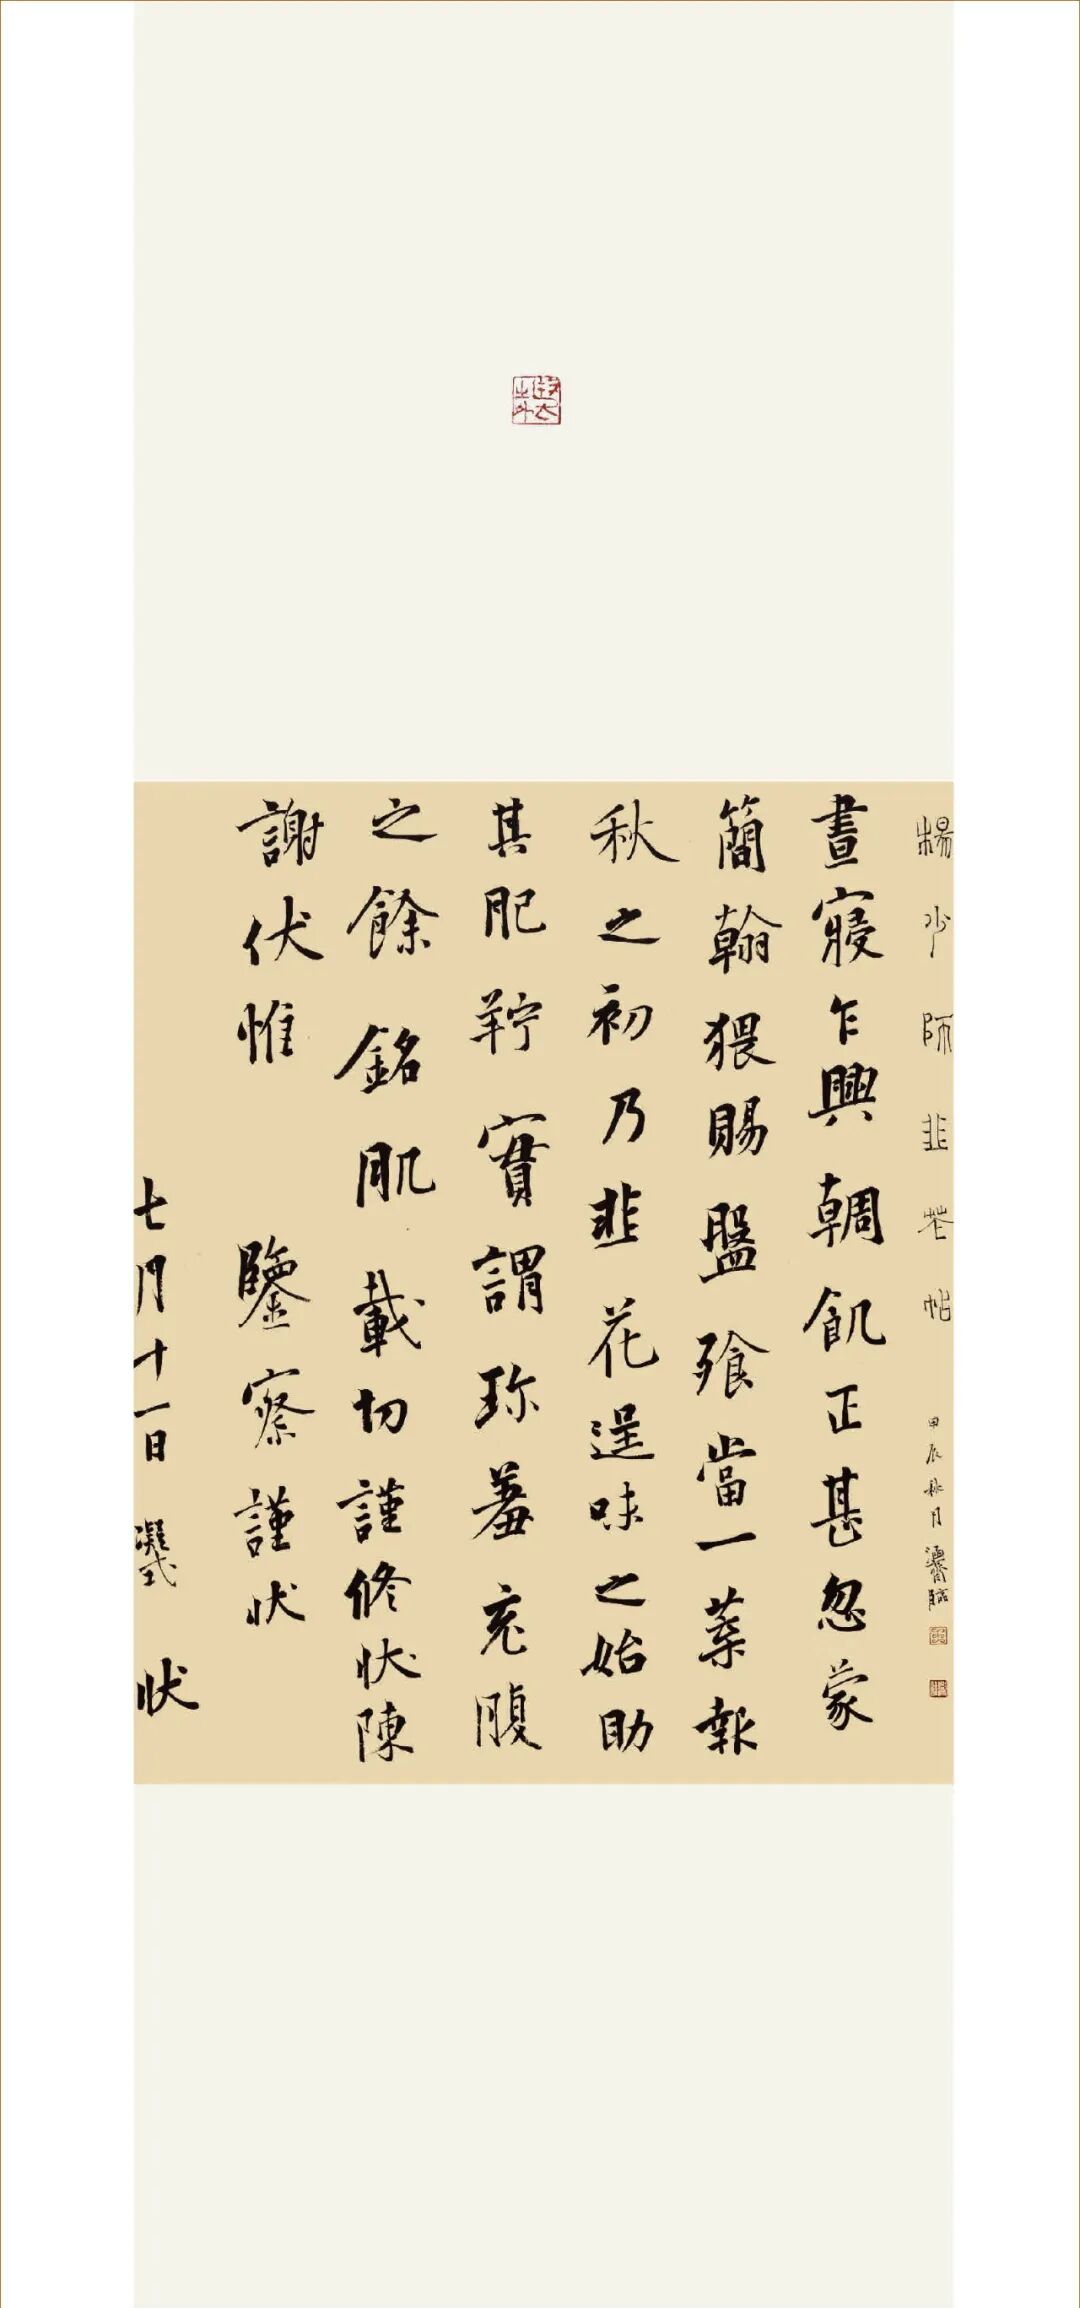 楊少師韭花帖 甲辰秋月 臨
晝寢乍興輖飢正甚忽蒙
簡翰猥賜盤飧當一葉報
秋之初乃韭花逞味之始助
其肥羜實謂珍羞充腹
之餘銘肌載切謹修狀陳
謝伏惟 鑒察謹狀
七月十一日 凝式 狀